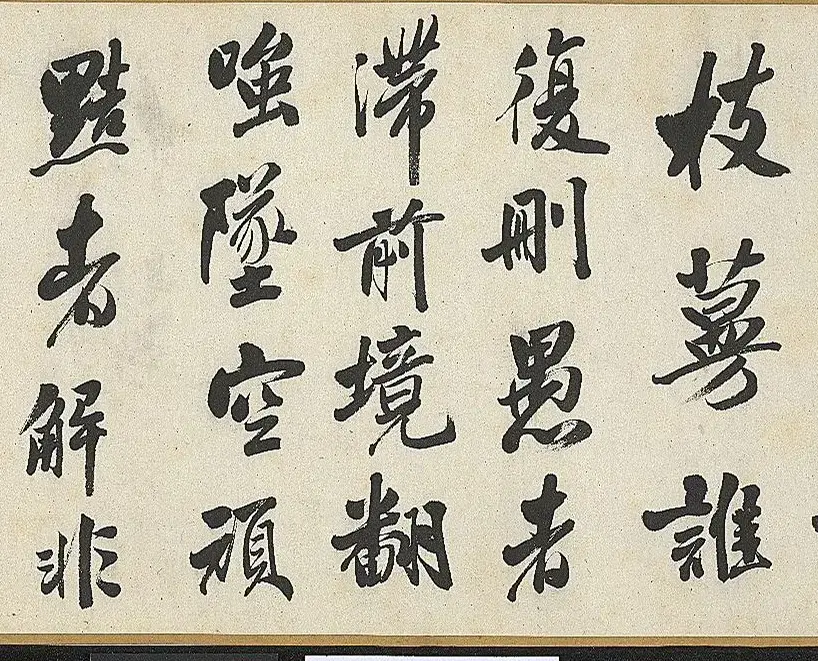 枝蔓誰
復刪愚者
滯前境翻
嗤墜空頑
黠者解非